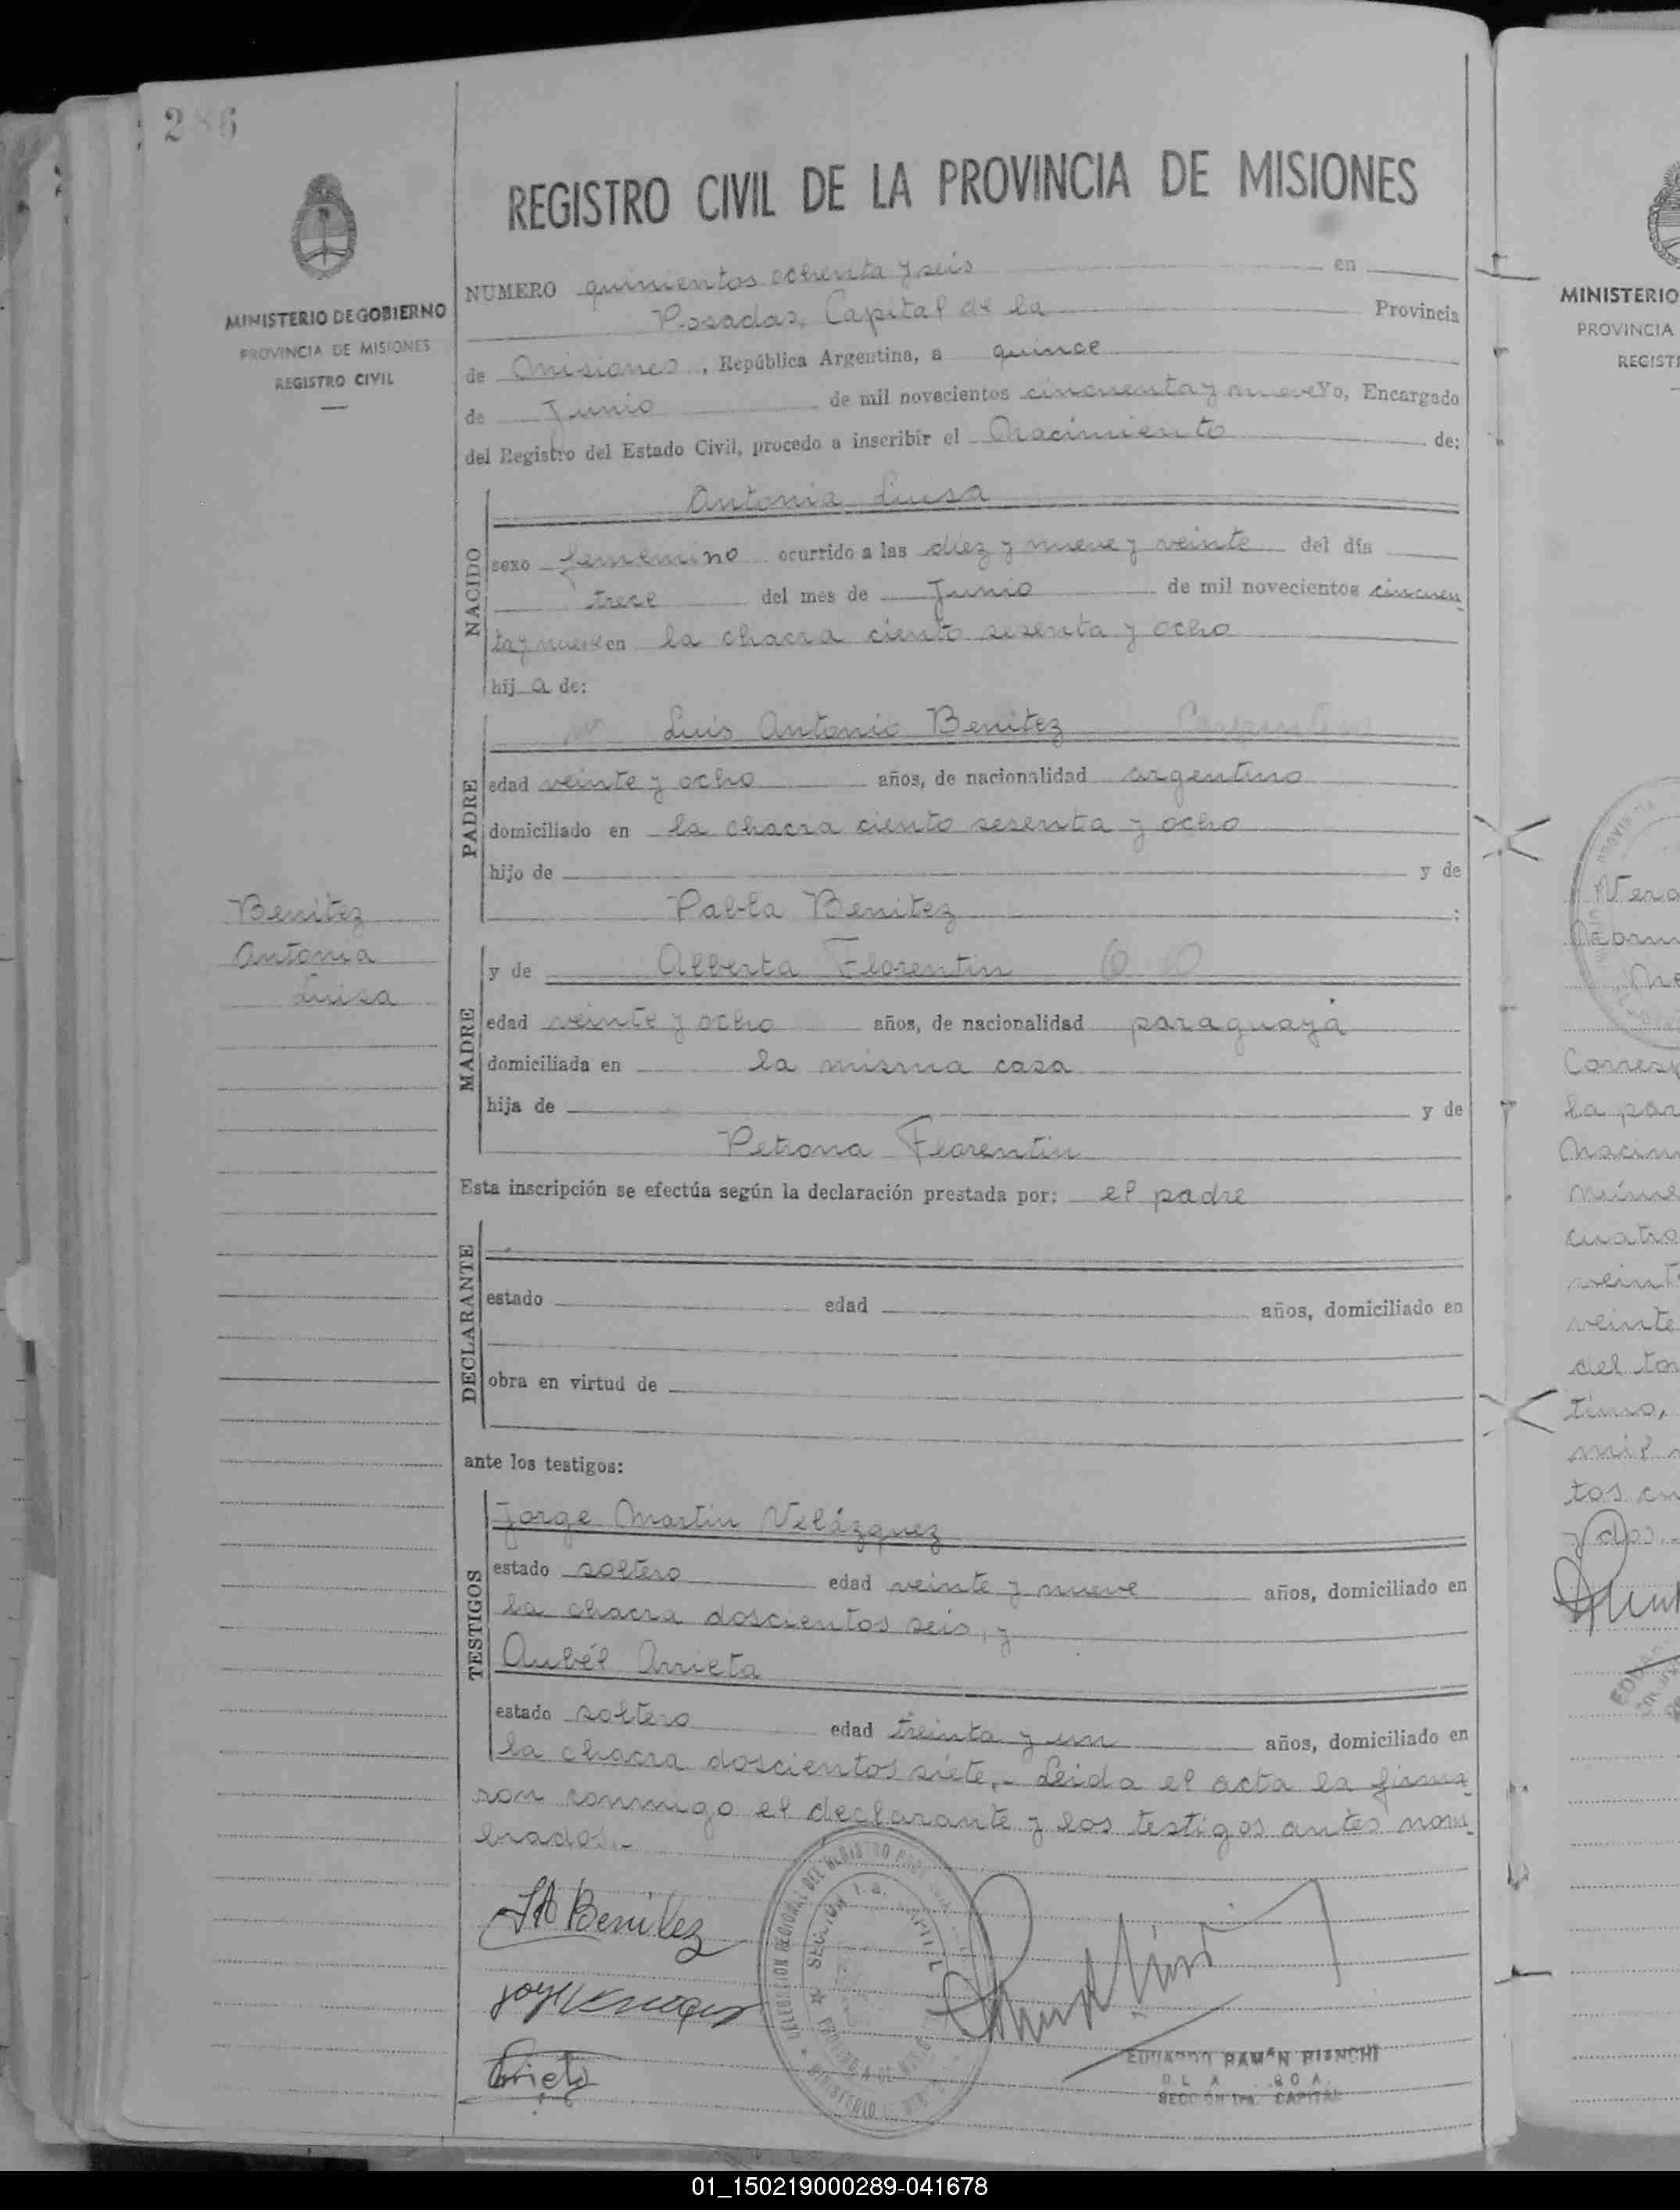 286
REGISTRO CIVIL DE LA PROVINCIA DE MISIONES
MINISTERIO DE GOBIERNO
PROVINCIA DE MISIONES
REGISTRO CIVIL
NUMERO quinientos ochenta y seis en
Posadas, Capital de la Provincia
de Misiones, República Argentina, a quince
de Junio de mil novecientos cincuenta y nueve Yo, Encargado
del Registro del Estado Civil, procedo a inscribir el Nacimiento de:
NACIDO
Antonia Luisa
sexo femenino ocurrido a las diez y nueve y veinte del día
trece del mes de Junio de mil novecientos cincuen
ta y nueve en la chacra ciento sesenta y ocho
hij a de:
PADRE
Luis Antonio Benitez
edad veinte y ocho años, de nacionalidad argentino
domiciliado en la chacra ciento sesenta y ocho
hijo de y de
Pabla Benitez :
Benitez
Antonia
Luisa
MADRE
y de Alberta Florentin
edad veinte y ocho años, de nacionalidad paraguaya
domiciliada en la misma casa
hija de y de
Petrona Florentin
Esta inscripción se efectúa según la declaración prestada por: el padre
DECLARANTE
estado edad años, domiciliado en
obra en virtud de
ante los testigos:
TESTIGOS
Jorge Martin Velázquez
estado soltero edad veinte y nueve años, domiciliado en
la chacra doscientos seis, y
Aubél Arrieta
estado soltero edad treinta y un años, domiciliado en
la chacra doscientos siete.- Leida el acta la firma
ron conmigo el declarante y los testigos antes nom
brados.-
LA Benitez
Arrieta
EDUARDO RAMON BIANCHI
SECCION 1ra. CAPITAL
MINISTERIO
PROVINCIA
REGISTR
la par
Nacim
cuatro
veinte
del to
tino,
mil
y dos.
01_150219000289-041678